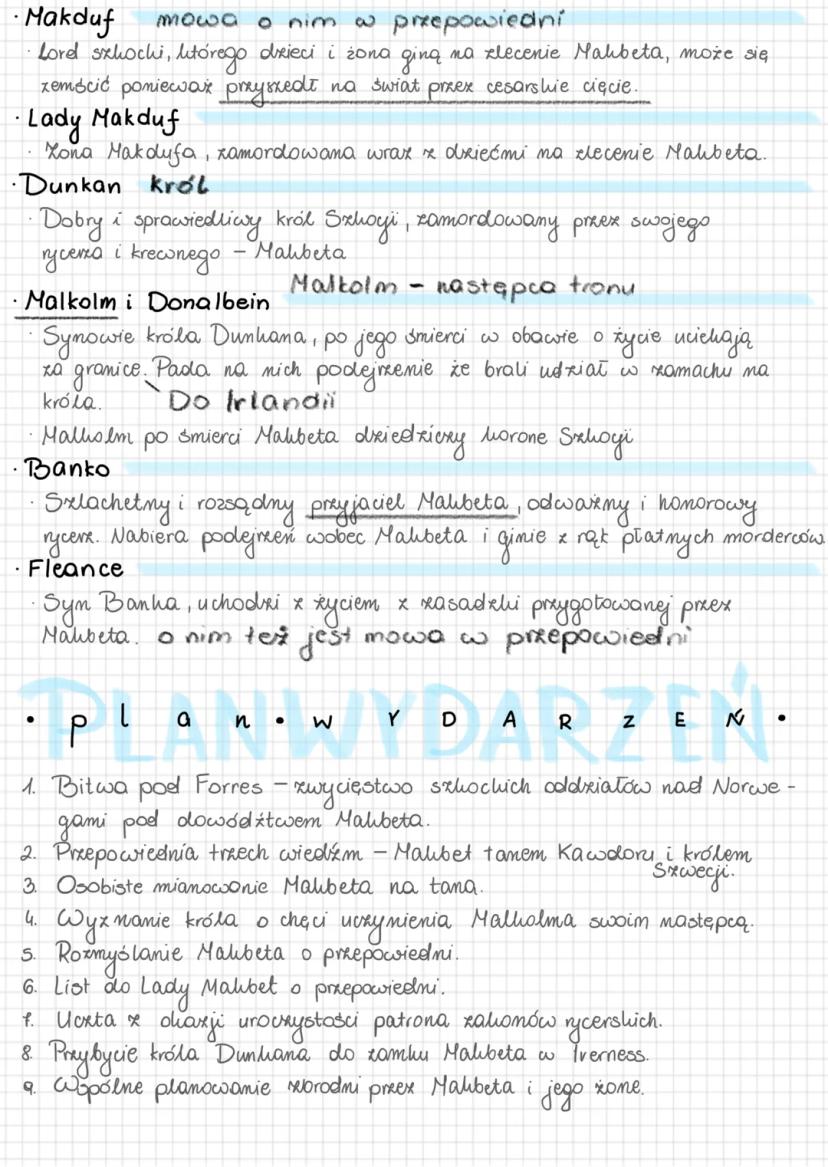 · Makduf mowa o nim w przepowiedni
· Lord szkocki, którego dzieci i żona giną na zlecenie Makbeta, może się
zemścić ponieważ przyszedł na świat przez cesarskie cięcie.
· Lady Makduf
· Żona Makdufa, zamordowana wraz z dziećmi na zlecenie Makbeta.
· Dunkan król
· Dobry i sprawiedliwy król Szkocji, zamordowany przez swojego
rycerza i krewnego – Makbeta
Malkolm – następca tronu
· Malkolm i Donalbein
· Synowie króla Dunkana, po jego śmierci w obawie o życie uciekają
za granice. Pada na nich podejrzenie że brali udział w zamachu na
króla. Do Irlandii
· Malkolm po śmierci Makbeta dziedziczy korone Szkocji
· Banko
· Szlachetny i rozsądny przyjaciel Makbeta, odważny i honorowy
rycerz. Nabiera podejrzeń wobec Makbeta i ginie z rąk płatnych morderców.
· Fleance
· Syn Banka, uchodzi z życiem z zasadzki przygotowanej przez
Makbeta. o nim też jest mowa w przepowiedni
PLAN WYDARZEŃ
· plan · WYDARZEŃ ·
1. Bitwa pod Forres – zwycięstwo szkockich oddziałów nad Norwe -
gami pod dowództwem Makbeta.
2. Przepowiednia trzech wiedźm – Makbet tanem Kawdoru i królem
Szwecji.
3. Osobiste mianowanie Makbeta na tana.
4. Wyznanie króla o chęci uczynienia Malkolma swoim następcą.
5. Rozmyślanie Makbeta o przepowiedni.
6. List do Lady Makbet o przepowiedni.
7. Uczta z okazji uroczystości patrona zakonów rycerskich.
8. Przybycie króla Dunkana do zamku Makbeta w Iverness.
9. Wspólne planowanie zbrodni przez Makbeta i jego żone.